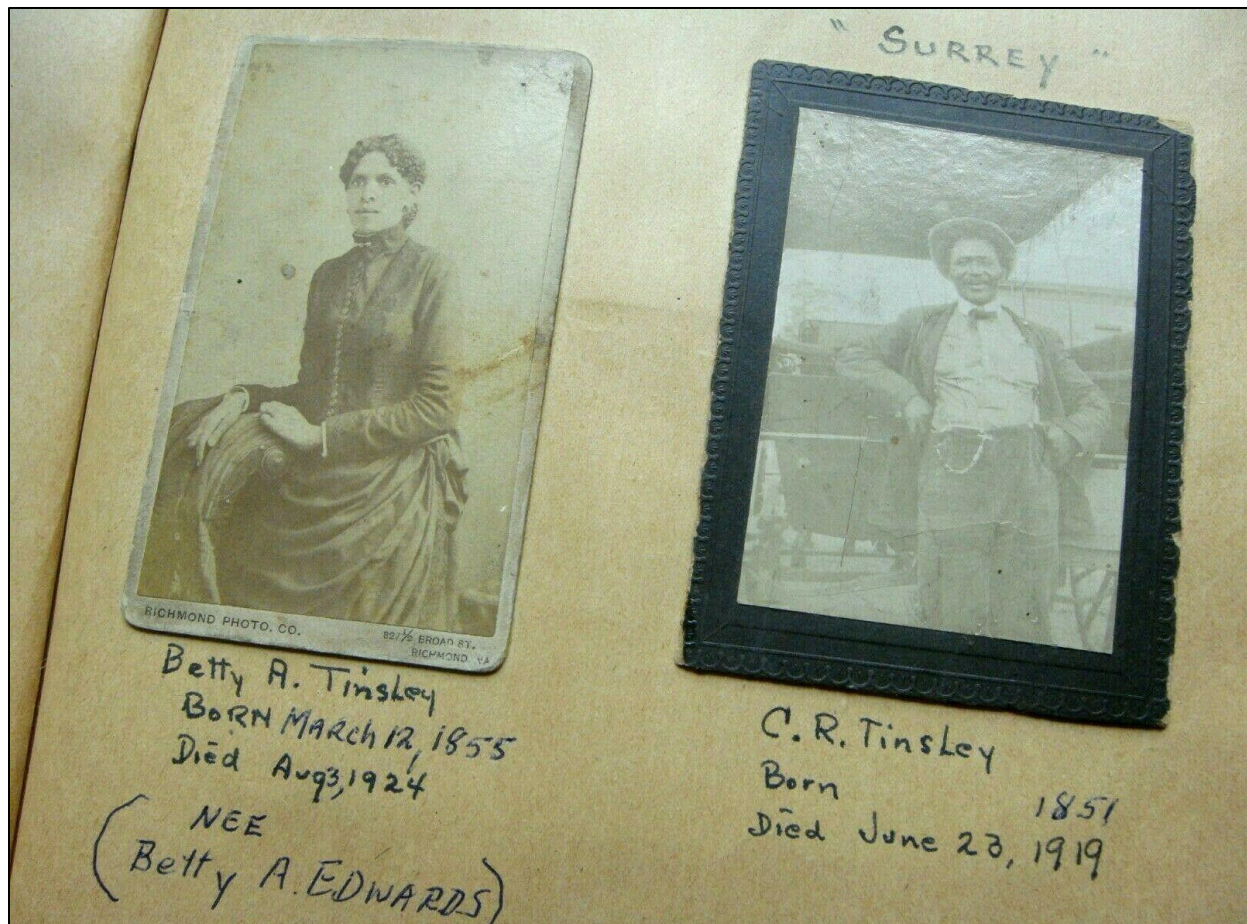 " SURREY "
RICHMOND PHOTO. CO.
827½ BROAD ST.,
RICHMOND, VA
Betty A. Tinsley
BORN MARch 12, 1855
Died Aug 3, 1924
(NEE
Betty A. EDWARDS)
C. R. Tinsley
Born 1851
Died June 23, 1919